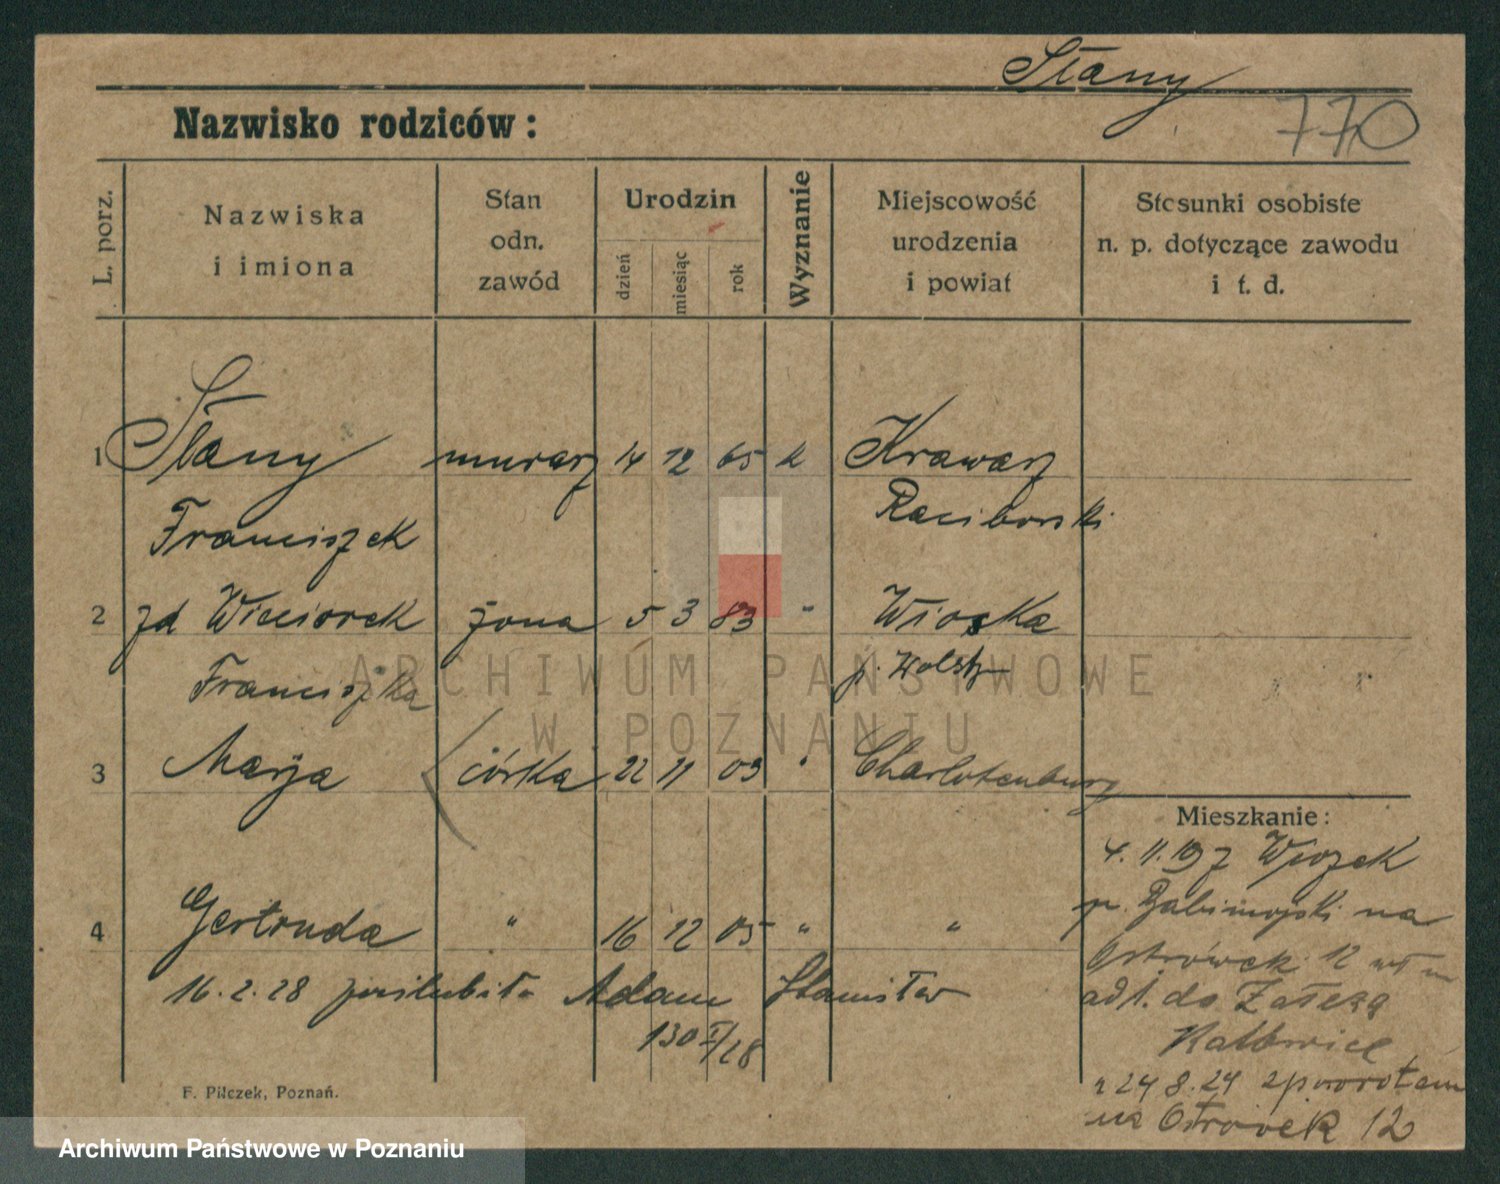 Slany
770
Nazwisko rodziców :
L. porz.
Nazwiska i imiona
Stan odn. zawód
Urodzin
dzień
miesiąc
rok
Wyznanie
Miejscowość urodzenia i powiat
Stosunki osobiste n. p. dotyczące zawodu i t. d.
1 Slany murarz 14 12 65 k Krawarz
Franciszek Raciborski
2 zd Wieciorek żona 5 3 83 " Wioska
Franciszka p. Wolszt
3 Marja córka 22 11 03 " Charlotenburg
Mieszkanie :
4. 11. 19
p. Babimojski na
4 Gertruda " 16 12 05 " "
Ostrówek 12
16. 2. 28 poślubiła Adam Stanisław
adl. do Załęża
130 I/28
Katowice
24 8. 24 z powrotem
na Ostrówek 12
F. Pilczek, Poznań.
ARCHIWUM PAŃSTWOWE
W POZNANIU
Archiwum Państwowe w Poznaniu